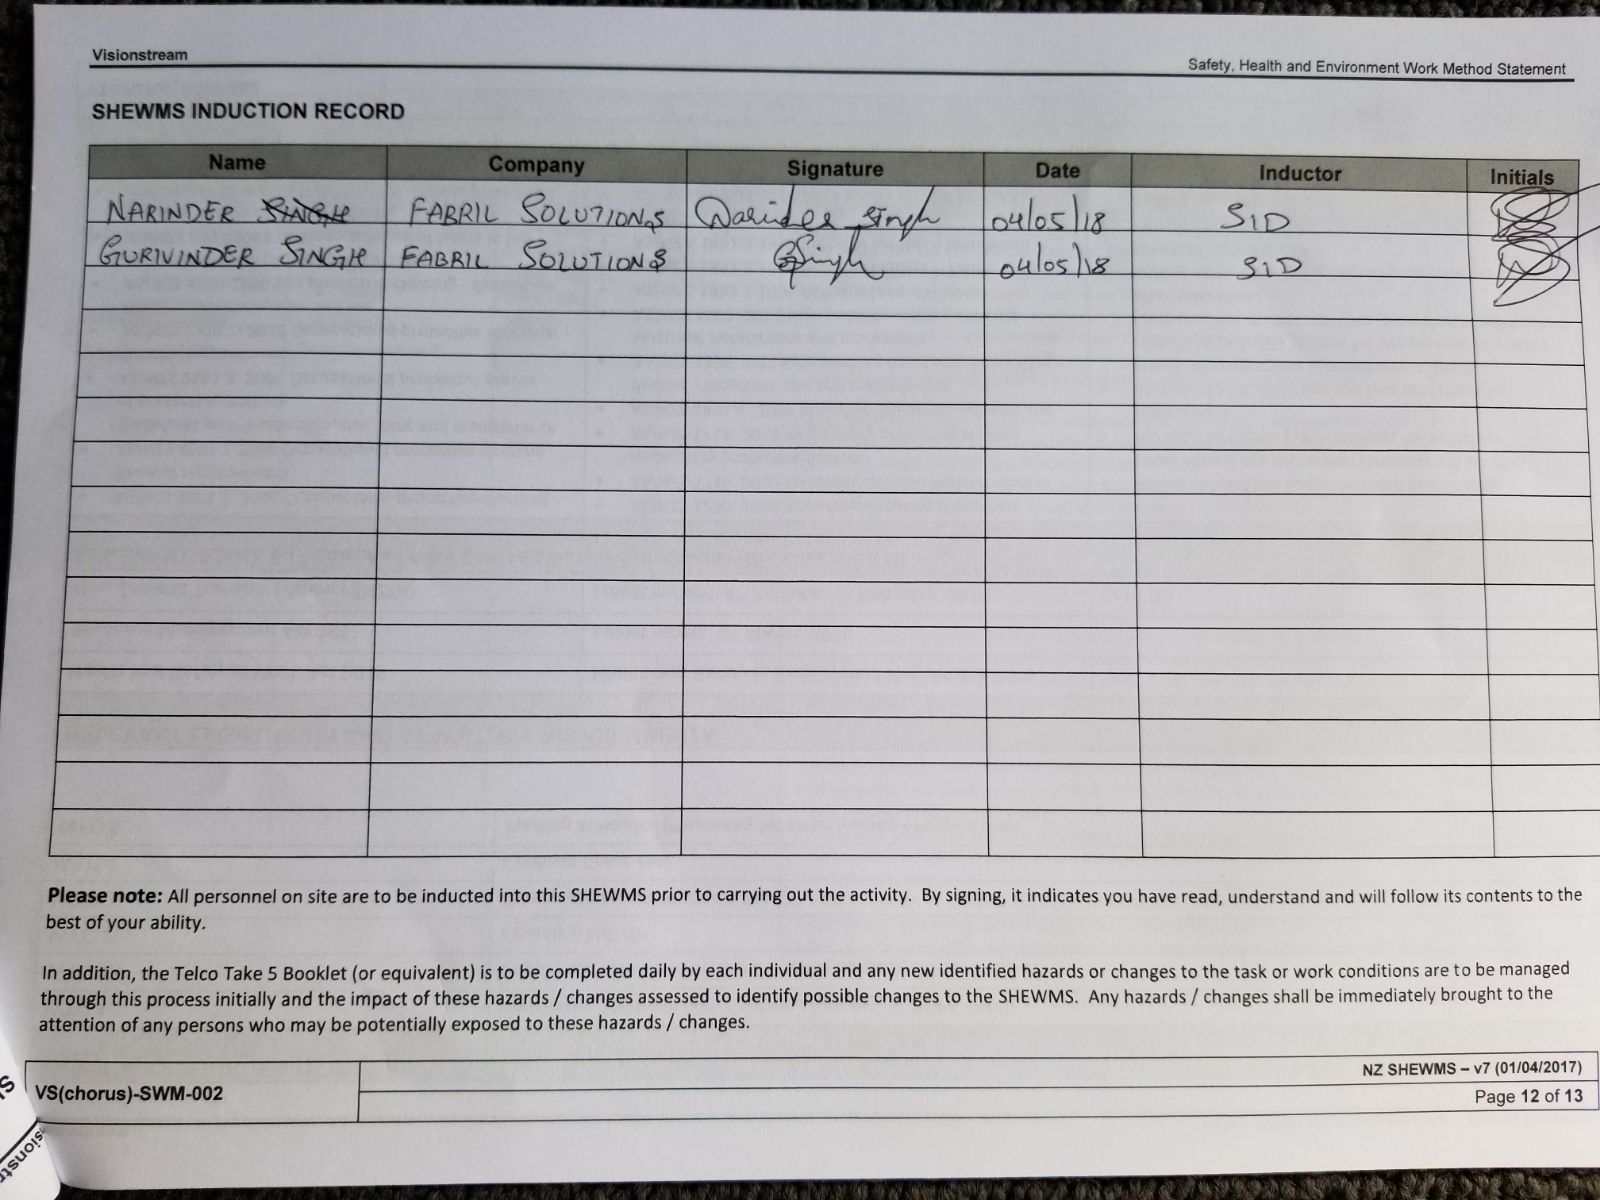 Visionstream
Safety, Health and Environment Work Method Statement
SHEWMS INDUCTION RECORD
Name Company Signature Date Inductor Initials
NARINDER SINGH FABRIL SOLUTIONS Narinder Singh 04/05/18 SID
GURIVINDER SINGH FABRIL SOLUTIONS GSingh 04/05/18 SID
Please note: All personnel on site are to be inducted into this SHEWMS prior to carrying out the activity. By signing, it indicates you have read, understand and will follow its contents to the
best of your ability.
In addition, the Telco Take 5 Booklet (or equivalent) is to be completed daily by each individual and any new identified hazards or changes to the task or work conditions are to be managed
through this process initially and the impact of these hazards / changes assessed to identify possible changes to the SHEWMS. Any hazards / changes shall be immediately brought to the
attention of any persons who may be potentially exposed to these hazards / changes.
VS(chorus)-SWM-002
NZ SHEWMS – v7 (01/04/2017)
Page 12 of 13